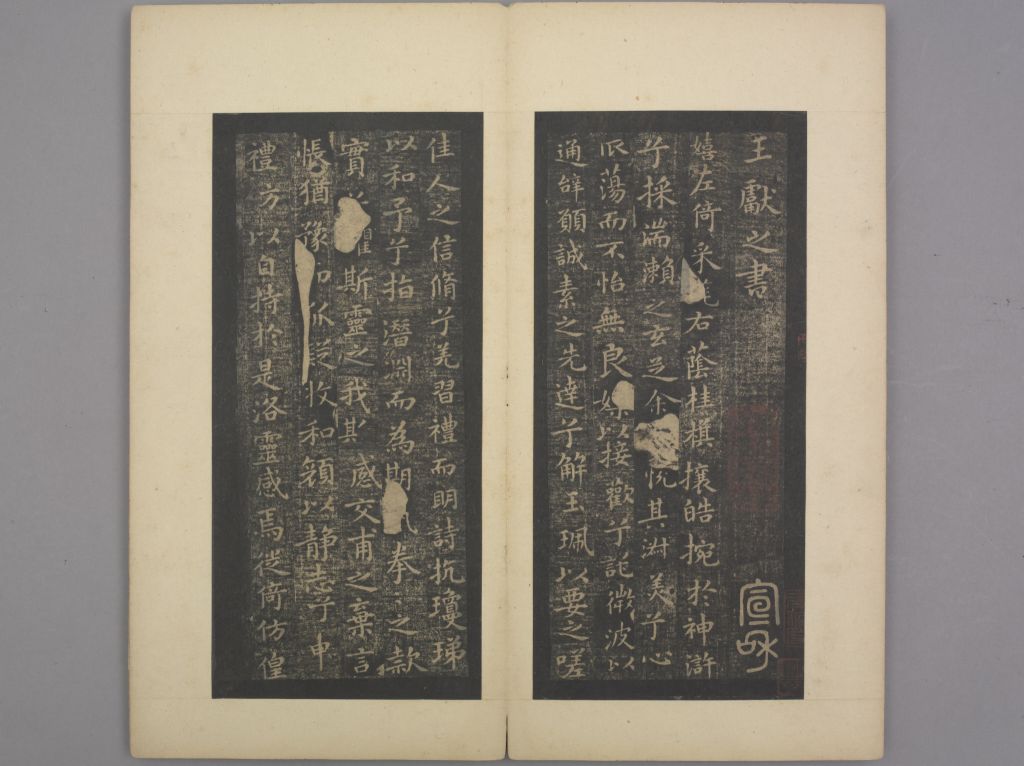 王獻之書
宣和
嬉左倚采旄右蔭桂旗攘皓捥於神滸
兮採湍瀨之玄芝余悅其淑美兮心
振蕩而不怡無良以接歡兮託微波以
通辭願誠素之先達兮解玉珮以要之嗟
佳人之信脩兮羌習禮而明詩抗瓊珶
以和予兮指潛淵而為期 拳〻之款
實 懼斯靈之我欺感交甫之棄言
悵猶豫 狐疑收和顏以靜志兮申
禮方以自持於是洛靈感焉徙倚仿偟